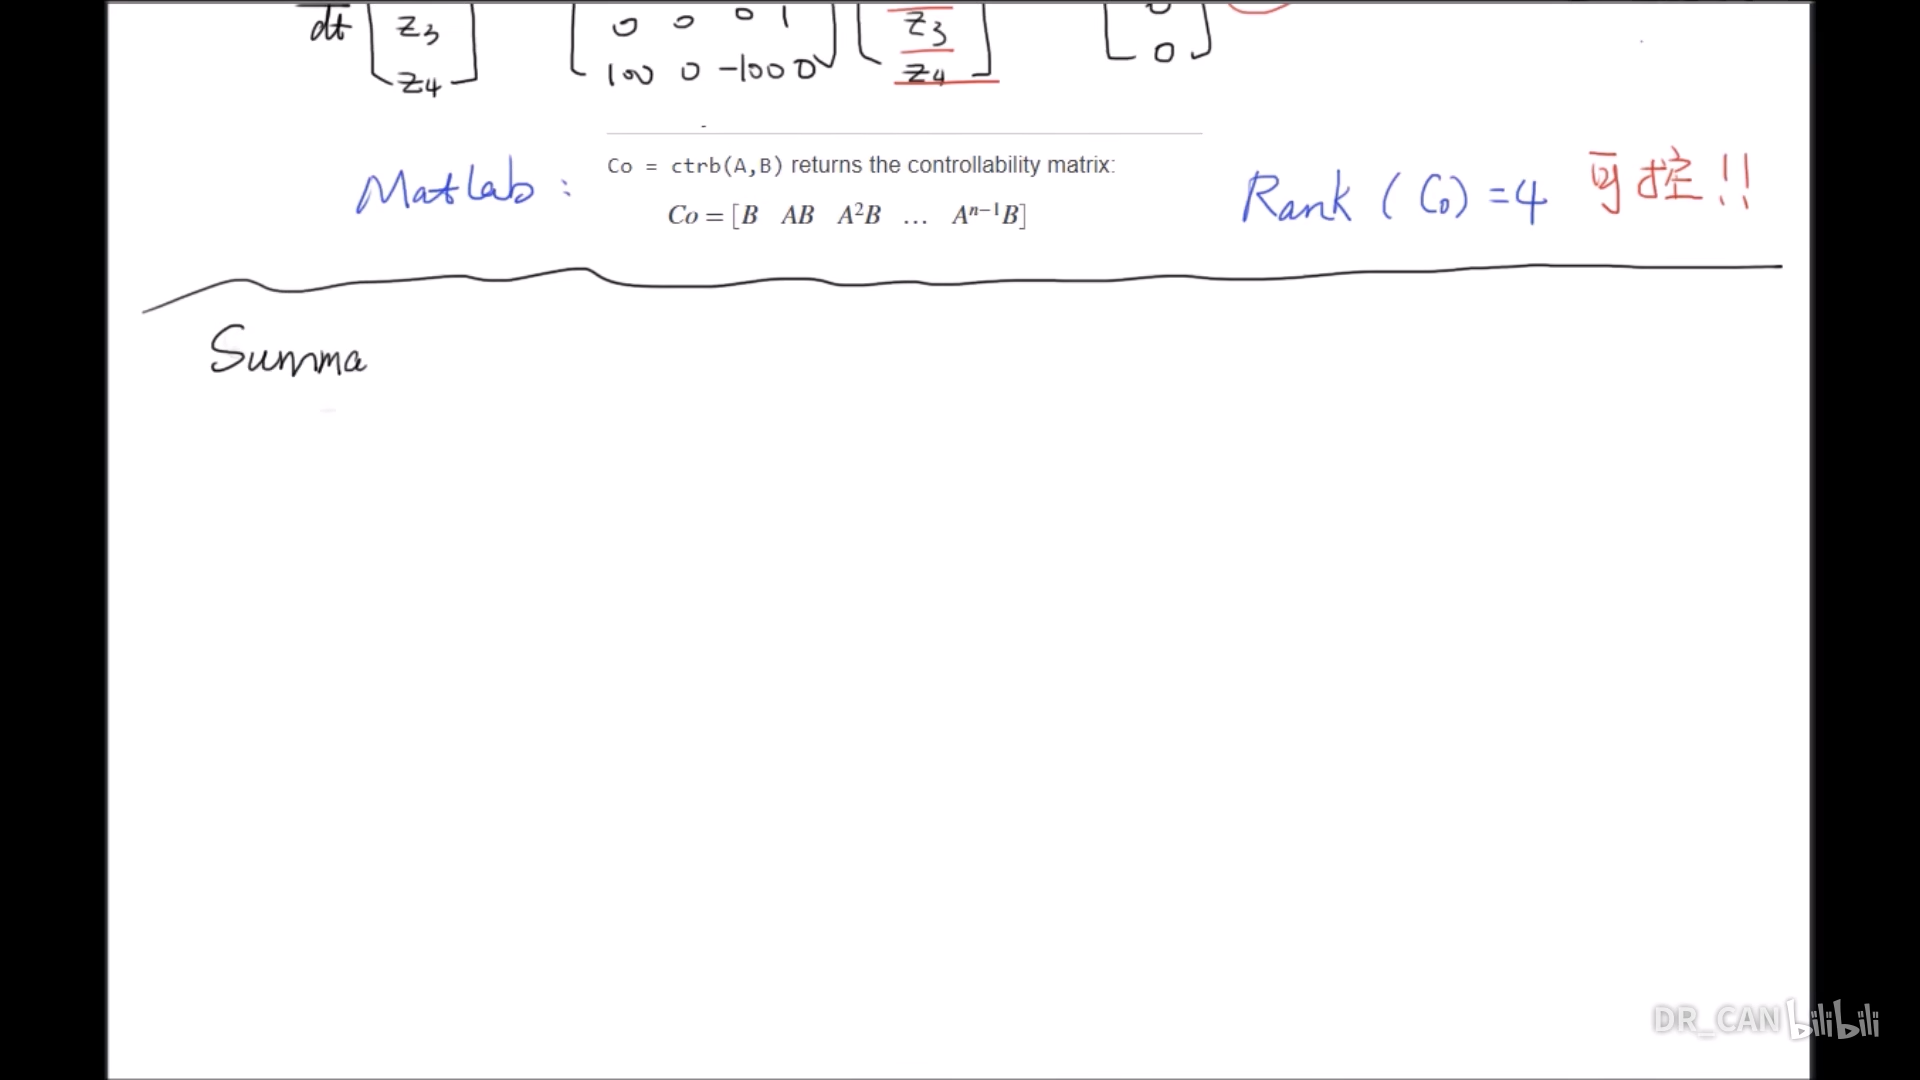 dt [ z3 ] [ 0 0 0 1 ] [ z3 ] [ 0 ]
z4 100 0 -100 0 z4 0
Matlab : Co = ctrb(A,B) returns the controllability matrix:
Co = [B AB A²B … Aⁿ⁻¹B]
Rank (Co) = 4 可控!!
Summa
DR_CAN bilibili